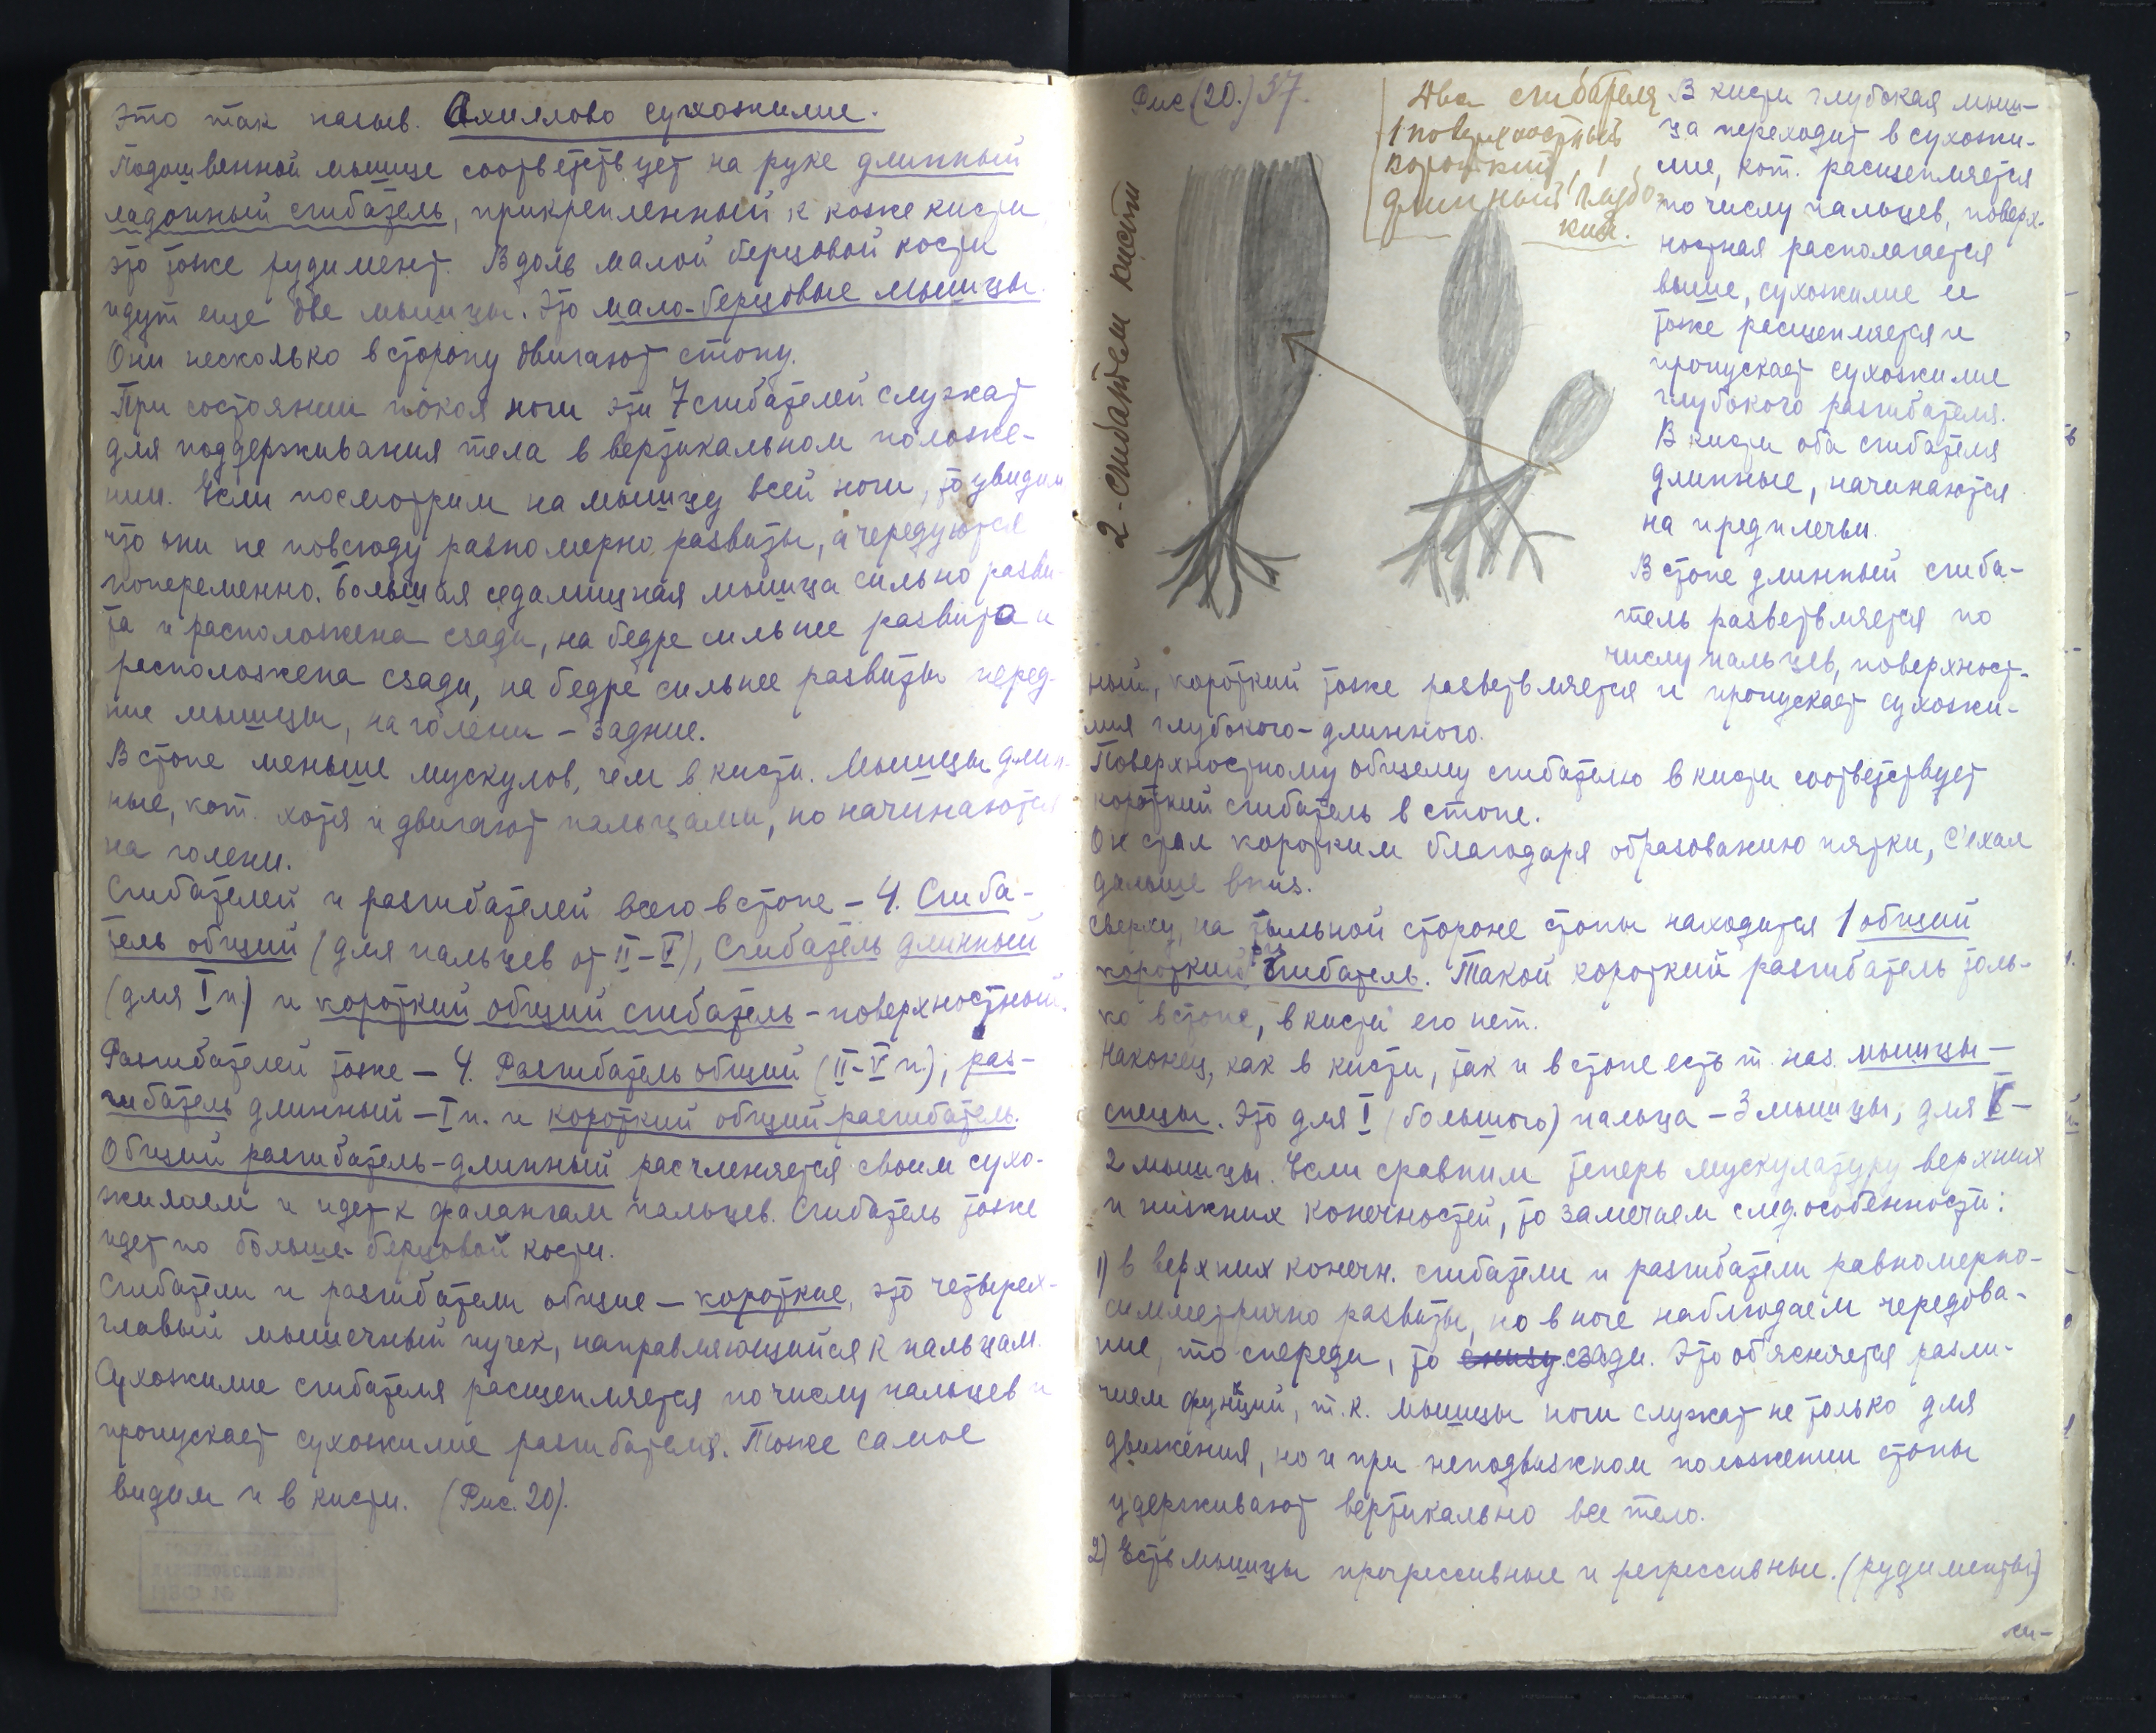 это так назыв. Ахиллово сухожилие.
Подошвенной мышце соответствует на руке длинный
ладонный сгибатель, прикрепленный к коже кисти
это тоже рудимент. Вдоль малой берцовой кости
идут еще две мышцы. Это мало-берцовые мышцы.
Они несколько в сторону двигают стопу.
При состоянии покоя ноги эти 7 сгибателей служат
для поддерживания тела в вертикальном положе-
нии. Если посмотрим на мышцу всей ноги, то увидим
что они не повсюду равномерно развиты, а чередуются
попеременно. Большая седалищная мышца сильно разви-
та и расположена сзади, на бедре сильнее развита и
расположена сзади, на бедре сильнее развиты перед-
ние мышцы, на голени – задние.
В стопе меньше мускулов, чем в кисти. Мышцы длин-
ные, кот. хотя и двигают пальцами, но начинаются
на голени.
Сгибателей и разгибателей всего в стопе – 4. Сгиба-
тель общий (для пальцев от II–V), Сгибатель длинный
(для I п.) и короткий общий сгибатель – поверхностный.
Разгибателей тоже – 4. Разгибатель общий (II–V п.), раз-
гибатель длинный – I п. и короткий общий разгибатель.
Общий разгибатель-длинный расчленяется своим сухо-
жилием и идет к фалангам пальцев. Сгибатель тоже
идет по больше-берцовой кости.
Сгибатели и разгибатели общие – короткие, это четырех-
главый мышечный пучек, направляющийся к пальцам.
Сухожилие сгибателя расщепляется по числу пальцев и
пропускает сухожилие разгибателя. Тоже самое
видим и в кисти. (Рис. 20).
Рис (20.) 37.
2-сгибатели кисти
Два сгибателя
1 поверхностный
короткий, 1
длинный глубо-
кий.
В кисти глубокая мыш-
ца переходит в сухожи-
лие, кот. расщепляется
по числу пальцев, поверх-
ностная располагается
выше, сухожилие ее
тоже расщепляется и
пропускает сухожилие
глубокого разгибателя.
В кисти оба сгибателя
длинные, начинаются
на предплечьи.
В стопе длинный сгиба-
тель разветвляется по
числу пальцев, поверхност-
ный, короткий тоже разветвляется и пропускает сухожи-
лия глубокого-длинного.
Поверхностному общему сгибателю в кисти соответствует
короткий сгибатель в стопе.
Он стал коротким благодаря образованию пятки, с'ехал
дальше вниз.
Сверху, на тыльной стороне стопы находится 1 общий
короткий сгибатель. Такой короткий разгибатель толь-
ко в стопе, в кисти его нет.
Наконец, как в кисти, так и в стопе есть т. наз. мышцы–
спецы. Это для I (большого) пальца – 3 мышцы, для V –
2 мышцы. Если сравним теперь мускулатуру верхних
и нижних конечностей, то замечаем след. особенности:
1) в верхних конечн. сгибатели и разгибатели равномерно-
симметрично развиты, но в ноге наблюдаем чередова-
ние, то спереди, то снизу сзади. Это об'ясняется разли-
чием функций, т.к. мышцы ноги служат не только для
движения, но и при неподвижном положении стопы
удерживают вертикально все тело.
2) Есть мышцы прогрессивные и регрессивные. (рудименты)